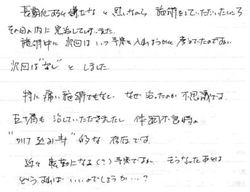 長期になると嫌だな と思いながら 施術をしていただいたところ
その日の内に 完治してしまいました。
説明中に 次回は いつ予約を入れようかと 考えてたのであ
次回は"なし" と しました
特に痛い施術でもなく なぜ治ったのか 不思議です。
立ち方も 治していただきましたし 体調不良時の
"かけ込み寺" 的な存在です。
近々 転勤になる(?) 予定であ そうなったあとは
どうすればいいのでしょうか…?